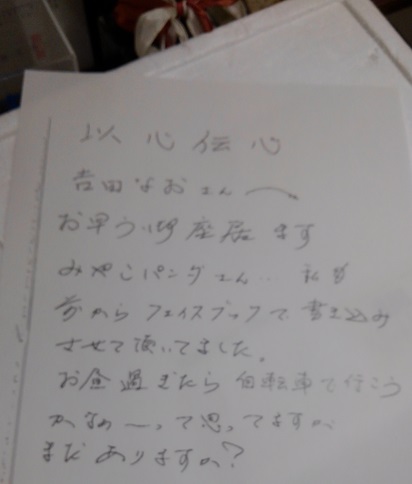 以心伝心
吉田なおさん〜
お早う御座居ます
みやこパンダさん… 私も
前からフェイスブックで書き込み
させて頂いてました。
お昼過ぎたら自転車で行こう
かなぁ〜って思ってますが
まだありますか?